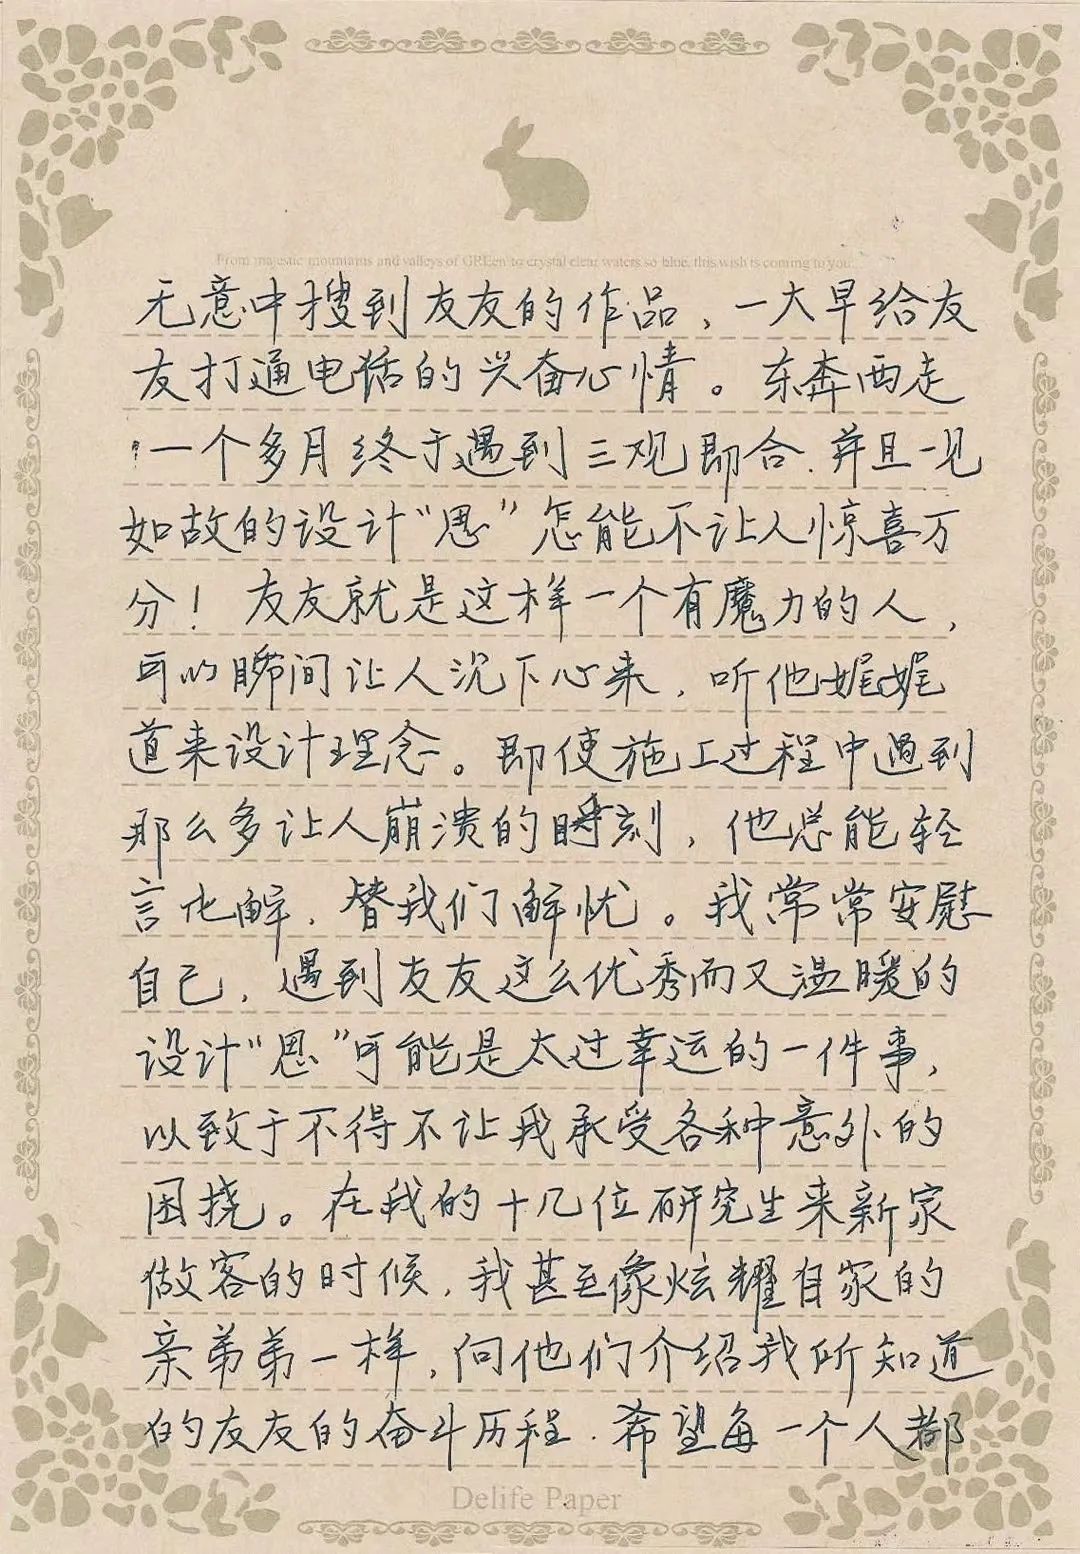 From majestic mountains and valleys of GREen to crystal clear waters so blue, this wish is coming to you.
无意中搜到友友的作品，一大早给友
友打通电话的兴奋心情。东奔西走
一个多月终于遇到三观即合、并且一见
如故的设计“思”怎能不让人惊喜万
分！友友就是这样一个有魔力的人，
可以瞬间让人沉下心来，听他娓娓
道来设计理念。即使施工过程中遇到
那么多让人崩溃的时刻，他总能轻
言化解，替我们解忧。我常常安慰
自己，遇到友友这么优秀而又温暖的
设计“思”可能是太过幸运的一件事，
以致于不得不让我承受各种意外的
困挠。在我的十几位研究生来新家
做客的时候，我甚至像炫耀自家的
亲弟弟一样，向他们介绍我所知道
的友友的奋斗历程．希望每一个人都
Delife Paper